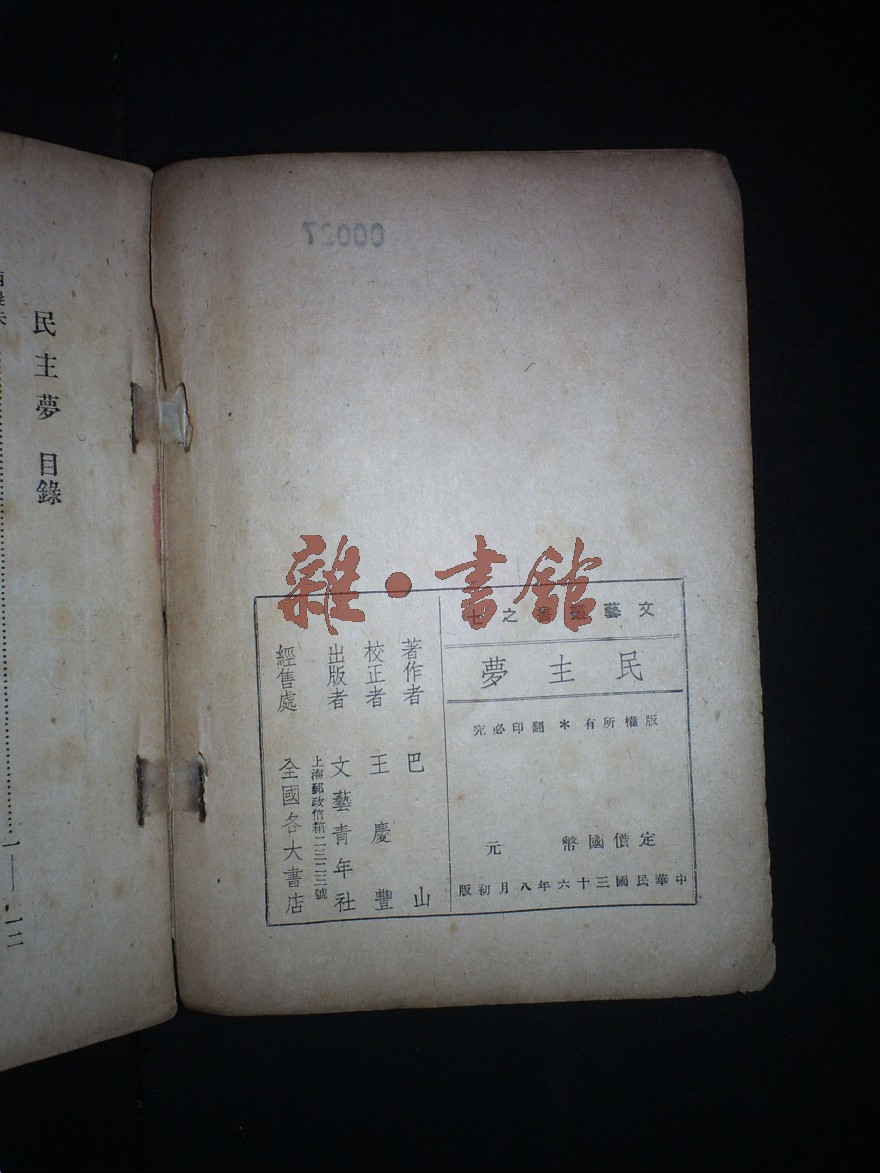 00027
民主夢 目錄
一——一二
雜·書館
文藝叢書之七
民主夢
版權所有＊翻印必究
定價國幣 元
中華民國三十六年八月初版
著作者 巴山
校正者 王慶豐
出版者 文藝青年社
上海郵政信箱二三二三號
經售處 全國各大書店